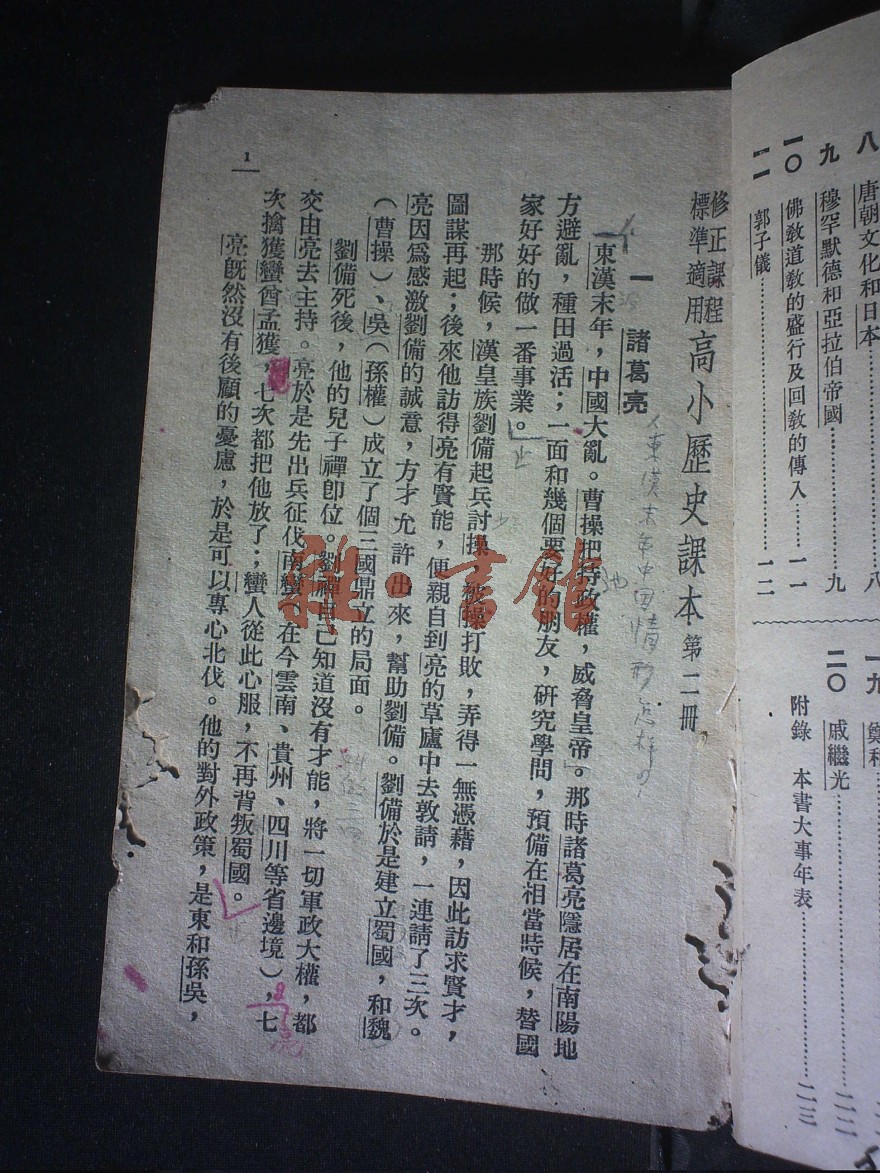 八 唐朝文化和日本……八
九 穆罕默德和亞拉伯帝國……九
一〇 佛敎道敎的盛行及回敎的傳入……一一
一一 郭子儀……一二
二〇 戚繼光……二二
附錄 本書大事年表……二三
修正課程標準適用 高小歷史課本 第二冊
一 諸葛亮
東漢末年中国情形怎样的?
東漢末年,中國大亂。曹操把持政權,威脅皇帝。那時諸葛亮隱居在南陽地
方避亂,種田過活;一面和幾個要好的朋友,研究學問,預備在相當時候,替國
家好好的做一番事業。
那時候,漢皇族劉備起兵討操,被操打敗,弄得一無憑藉,因此訪求賢才,
圖謀再起;後來他訪得亮有賢能,便親自到亮的草廬中去敦請,一連請了三次。
亮因爲感激劉備的誠意,方才允許出來,幫助劉備。劉備於是建立蜀國,和魏
(曹操)、吳(孫權)成立了個三國鼎立的局面。
劉備死後,他的兒子禪卽位。劉禪自己知道沒有才能,將一切軍政大權,都
交由亮去主持。亮於是先出兵征伐南蠻(在今雲南、貴州、四川等省邊境),七
次擒獲蠻酋孟獲,七次都把他放了;蠻人從此心服,不再背叛蜀國。
亮旣然沒有後顧的憂慮,於是可以專心北伐。他的對外政策,是東和孫吳,
1
雜·書館